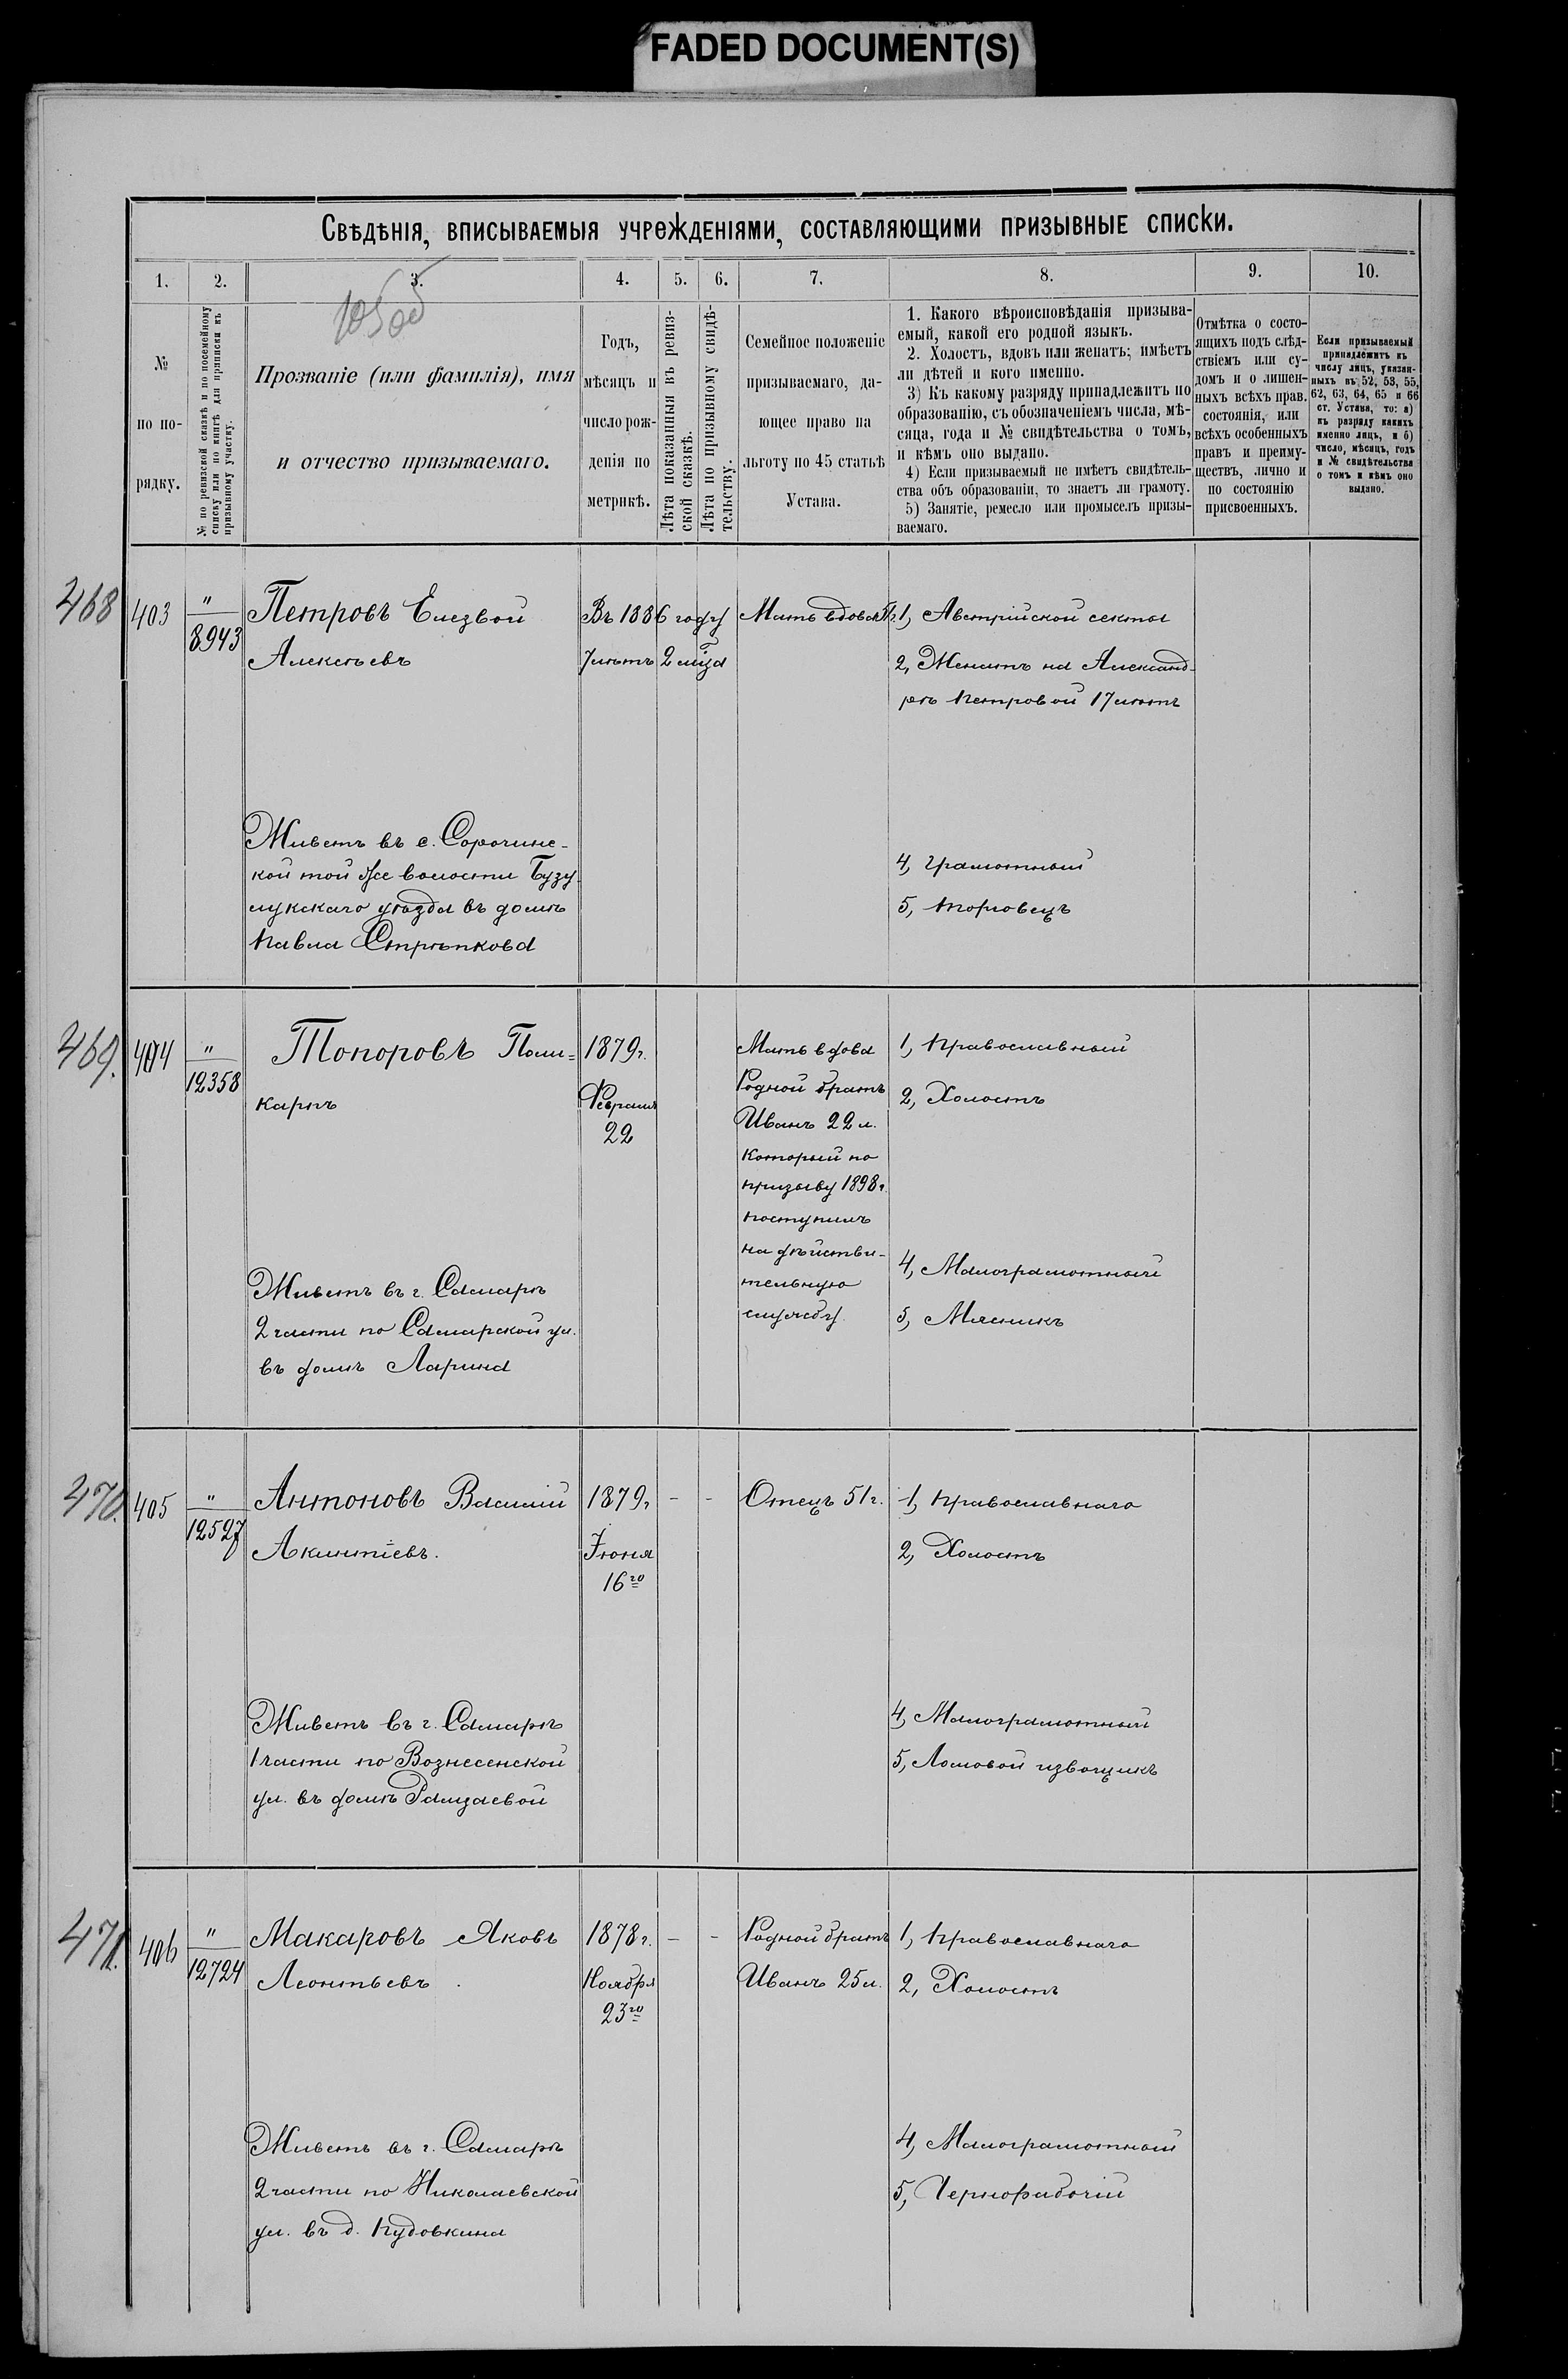 FADED DOCUMENT(S)
Свѣдѣнія, вписываемыя учрежденіями, составляющими призывные списки.
1. 2. 3. 4. 5. 6. 7. 8. 9. 10.
№
по по-
рядку.
№ по ревизской сказкѣ и по посемейному
списку или по книгѣ для приписки къ
призывному участку.
Прозваніе (или фамилія), имя
и отчество призываемаго.
Годъ,
мѣсяцъ и
число рож-
денія по
метрикѣ.
Лѣта показанныя въ ревиз-
ской сказкѣ.
Лѣта по призывному свидѣ-
тельству.
Семейное положеніе
призываемаго, да-
ющее право на
льготу по 45 статьѣ
Устава.
1. Какого вѣроисповѣданія призыва-
емый, какой его родной языкъ.
2. Холостъ, вдовъ или женатъ; имѣетъ
ли дѣтей и кого именно.
3) Къ какому разряду принадлежитъ по
образованію, съ обозначеніемъ числа, мѣ-
сяца, года и № свидѣтельства о томъ,
и кѣмъ оно выдано.
4) Если призываемый не имѣетъ свидѣтель-
ства объ образованіи, то знаетъ ли грамоту.
5) Занятіе, ремесло или промыселъ призы-
ваемаго.
Отмѣтка о состо-
ящихъ подъ слѣд-
ствіемъ или су-
домъ и о лишен-
ныхъ всѣхъ прав.
состоянія, или
всѣхъ особенныхъ
правъ и преиму-
ществъ, лично и
по состоянію
присвоенныхъ.
Если призываемый
принадлежитъ къ
числу лицъ, указан-
ныхъ въ 52, 53, 55,
62, 63, 64, 65 и 66
ст. Устава, то: а)
къ разряду какихъ
именно лицъ, и б)
число, мѣсяцъ, годъ
и № свидѣтельства
о томъ и кѣмъ оно
выдано.
468
403
"
8943
Петровъ Елезвой
Алексѣевъ
Живетъ въ с. Сорочинс-
кой той же волости Бузу-
лукскаго уѣзда въ домѣ
Павла Стрѣпкова
Въ 1886 году
7 лѣтъ 2 мѣсца
Мать вдова
1, Австрійской секты
2, Женатъ на Александ-
рѣ Петровой 17 лѣтъ
4, Грамотный
5, Торговецъ
469.
404
"
12358
Топоровъ Поли-
карпъ
Живетъ въ г. Самарѣ
2 части по Самарской ул.
въ домѣ Ларина
1879 г.
Февраля
22
Мать вдова
Родной братъ
Иванъ 22 л.
который по
призыву 1898 г.
поступилъ
на дѣйстви-
тельную
службу.
1, Православный
2, Холостъ
4, Малограмотный
5, Мясникъ
470.
405
"
12527
Антоновъ Василій
Акинтіевъ.
Живетъ въ г. Самарѣ
1 части по Вознесенской
ул. въ домѣ Рамзаевой
1879 г.
Іюня
16го
- -
Отецъ 51 г.
1, Православнаго
2, Холостъ
4, Малограмотный
5, Ломовой извощикъ
471.
406
"
12724
Макаровъ Яковъ
Леонтьевъ.
Живетъ въ г. Самарѣ
2 части по Николаевской
ул. въ д. Пудовкина
1878 г.
Ноября
23го
- -
Родной братъ
Иванъ 25 л.
1, Православнаго
2, Холостъ
4, Малограмотный
5, Чернорабочій